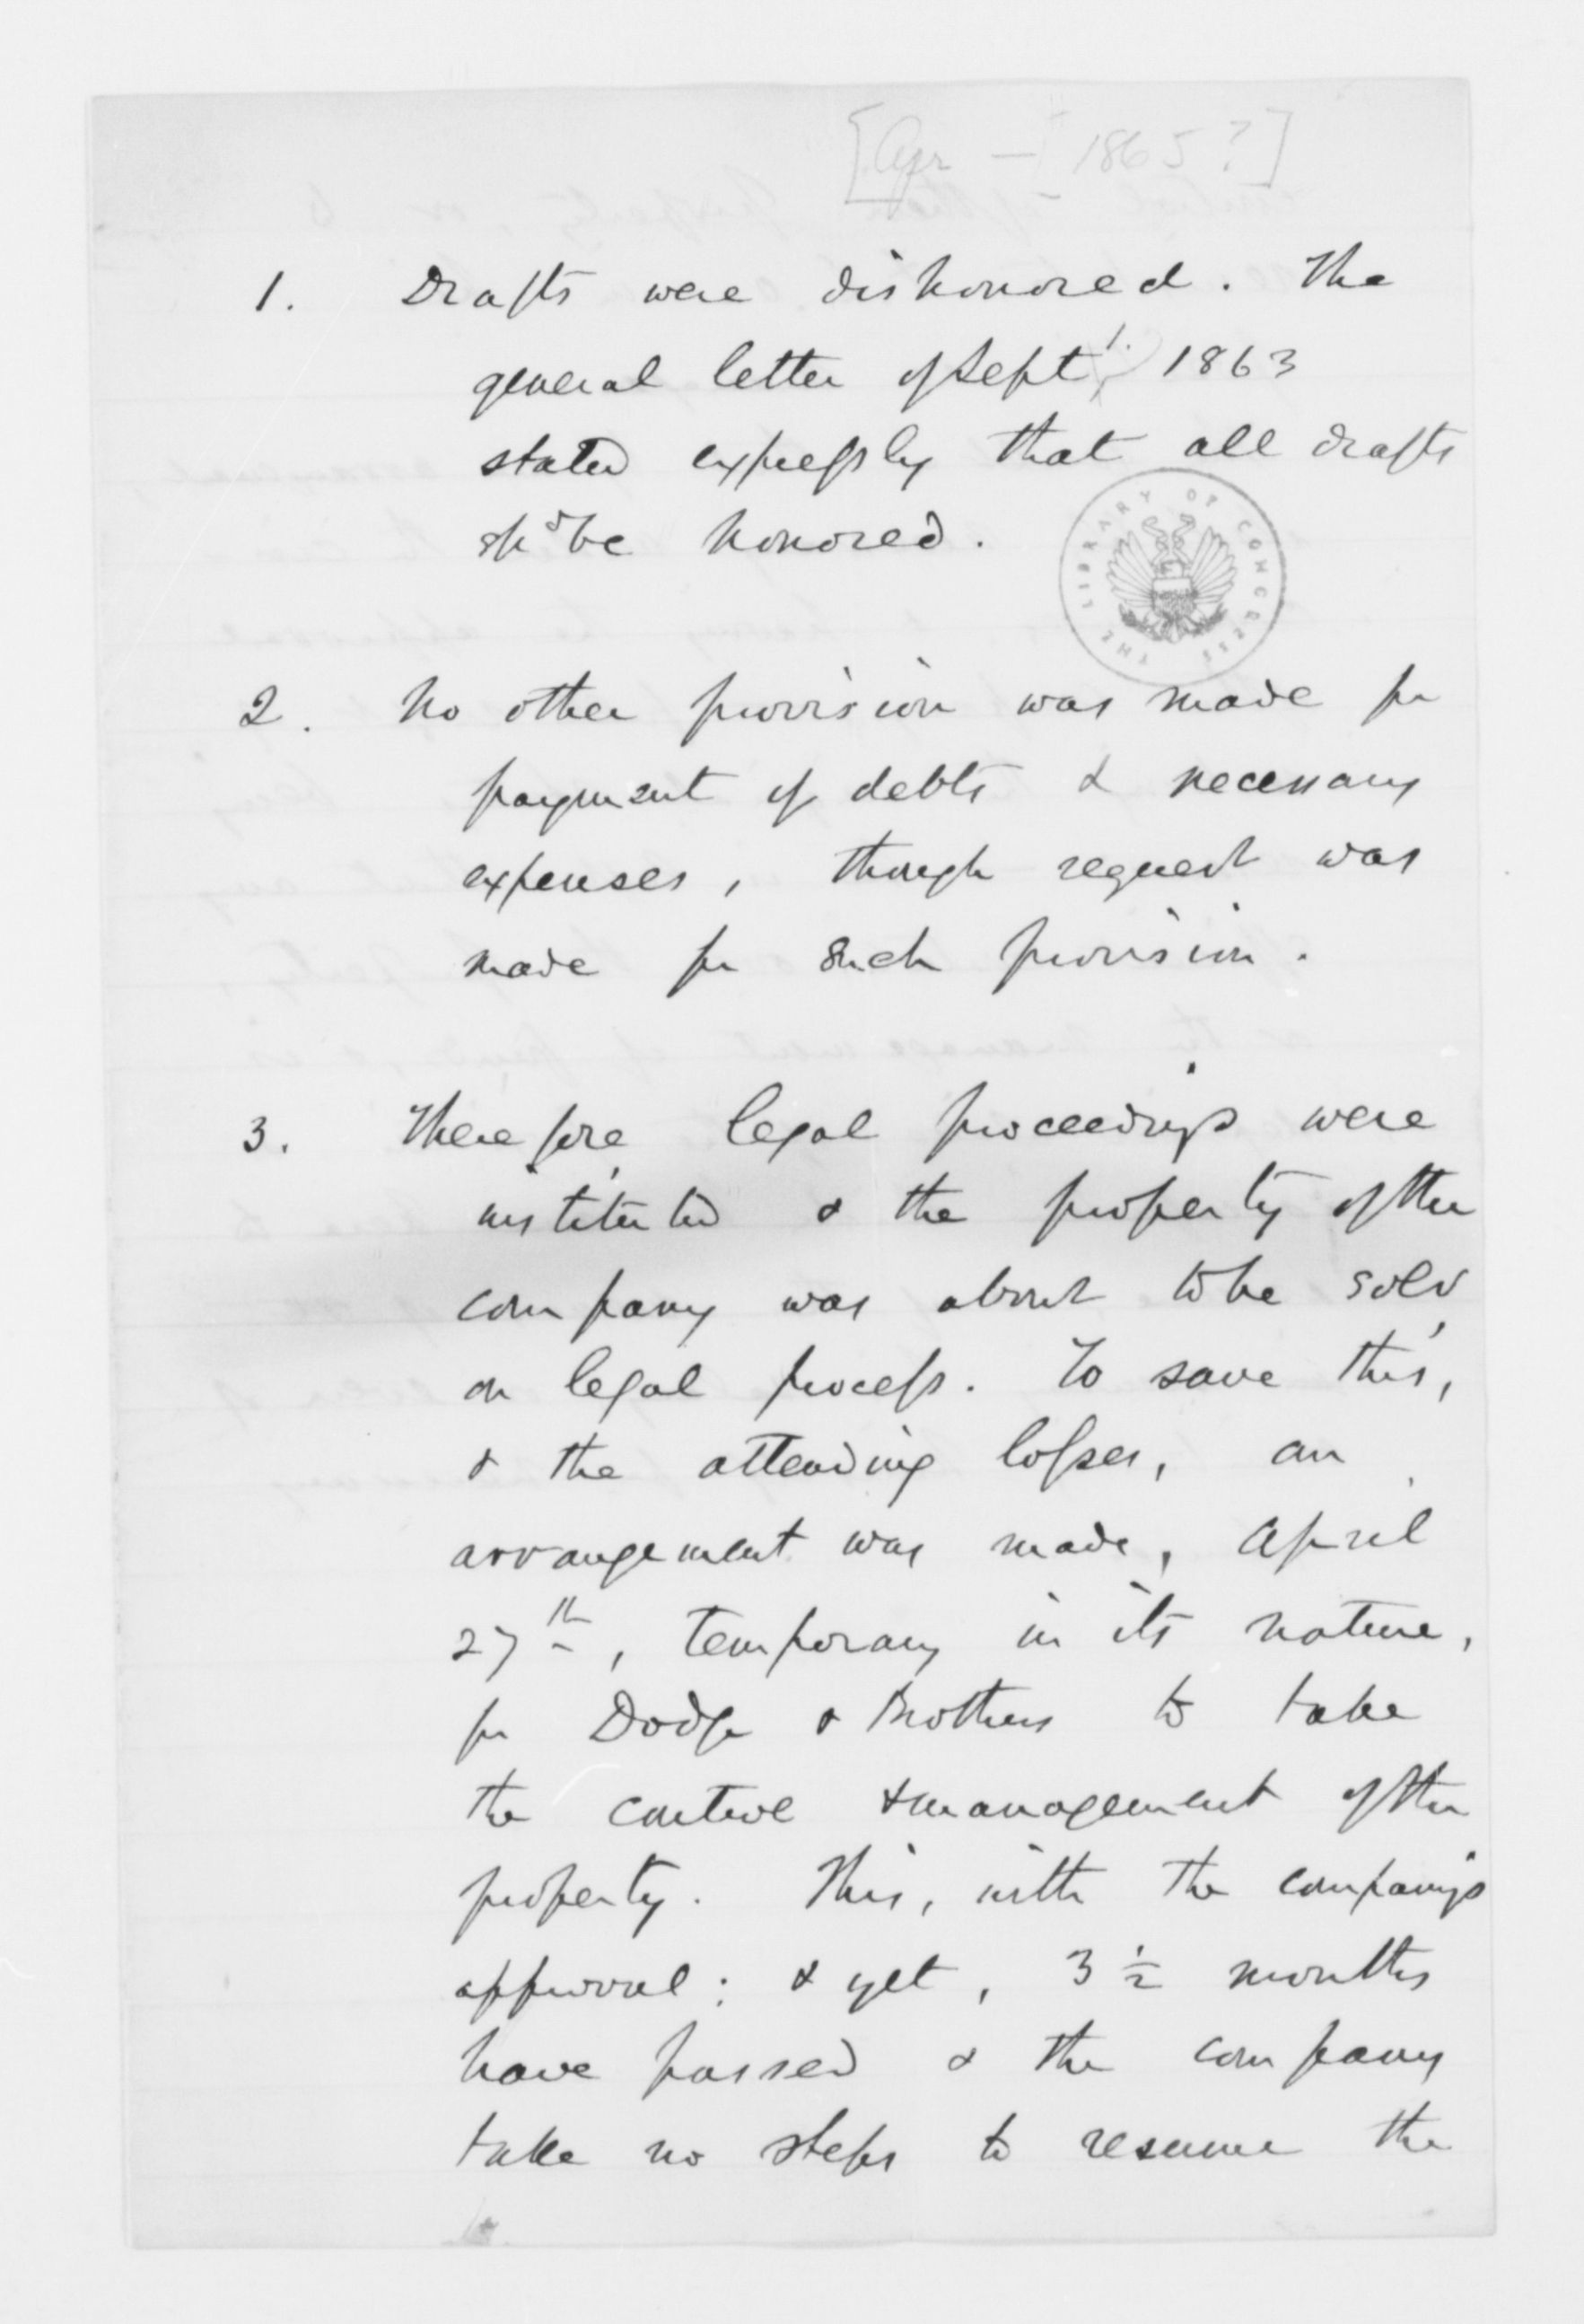 [Apr — 1865?]
1. Drafts were dishonored. The
general letter of Sept 1. 1863
stated expressly that all drafts
shd be honored.
THE LIBRARY OF CONGRESS
2. No other provision was made for
payment of debts & necessary
expenses, though request was
made for such provision.
3. Therefore legal proceedings were
instituted & the property of the
company was about to be sold
on legal process. To save this,
& the attending losses, an
arrangement was made, April
27th, temporary in its nature,
for Dodge & Brothers to take
the control & management of the
property. This, with the company's
approval; & yet, 3 ½ months
have passed & the company
take no steps to resume the